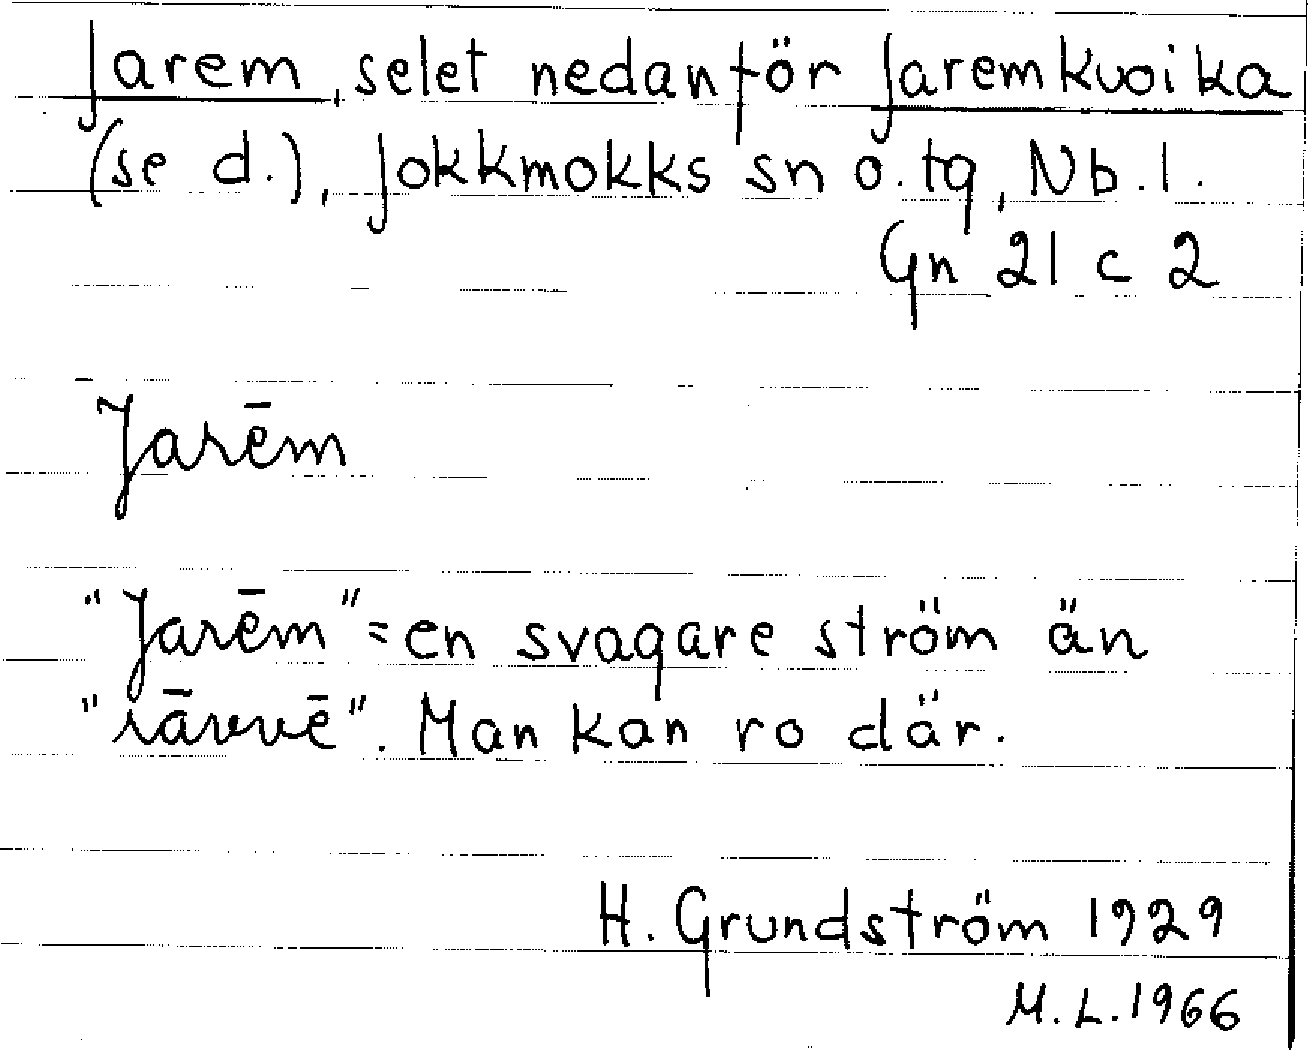 Jarem, selet nedanför Jaremkuoika
(se d.), Jokkmokks sn o. tg, Nb. l.
Gn 21 c 2
Jarēm
"Jarēm" = en svagare ström än
"rāvvē". Man kan ro där.
H. Grundström 1929
M. L. 1966